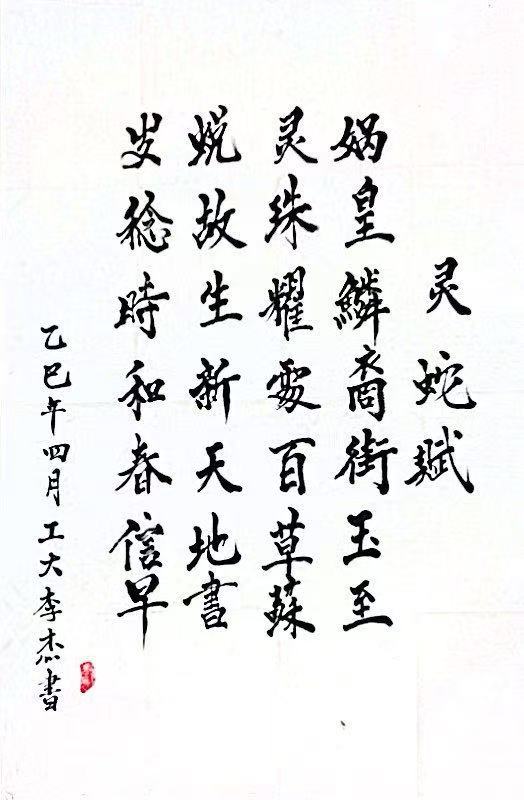 灵蛇赋
娲皇鱗裔衔玉至
灵珠耀處百草蘇
蜕故生新天地書
岁稔時和春信早
乙巳年四月工大李杰書